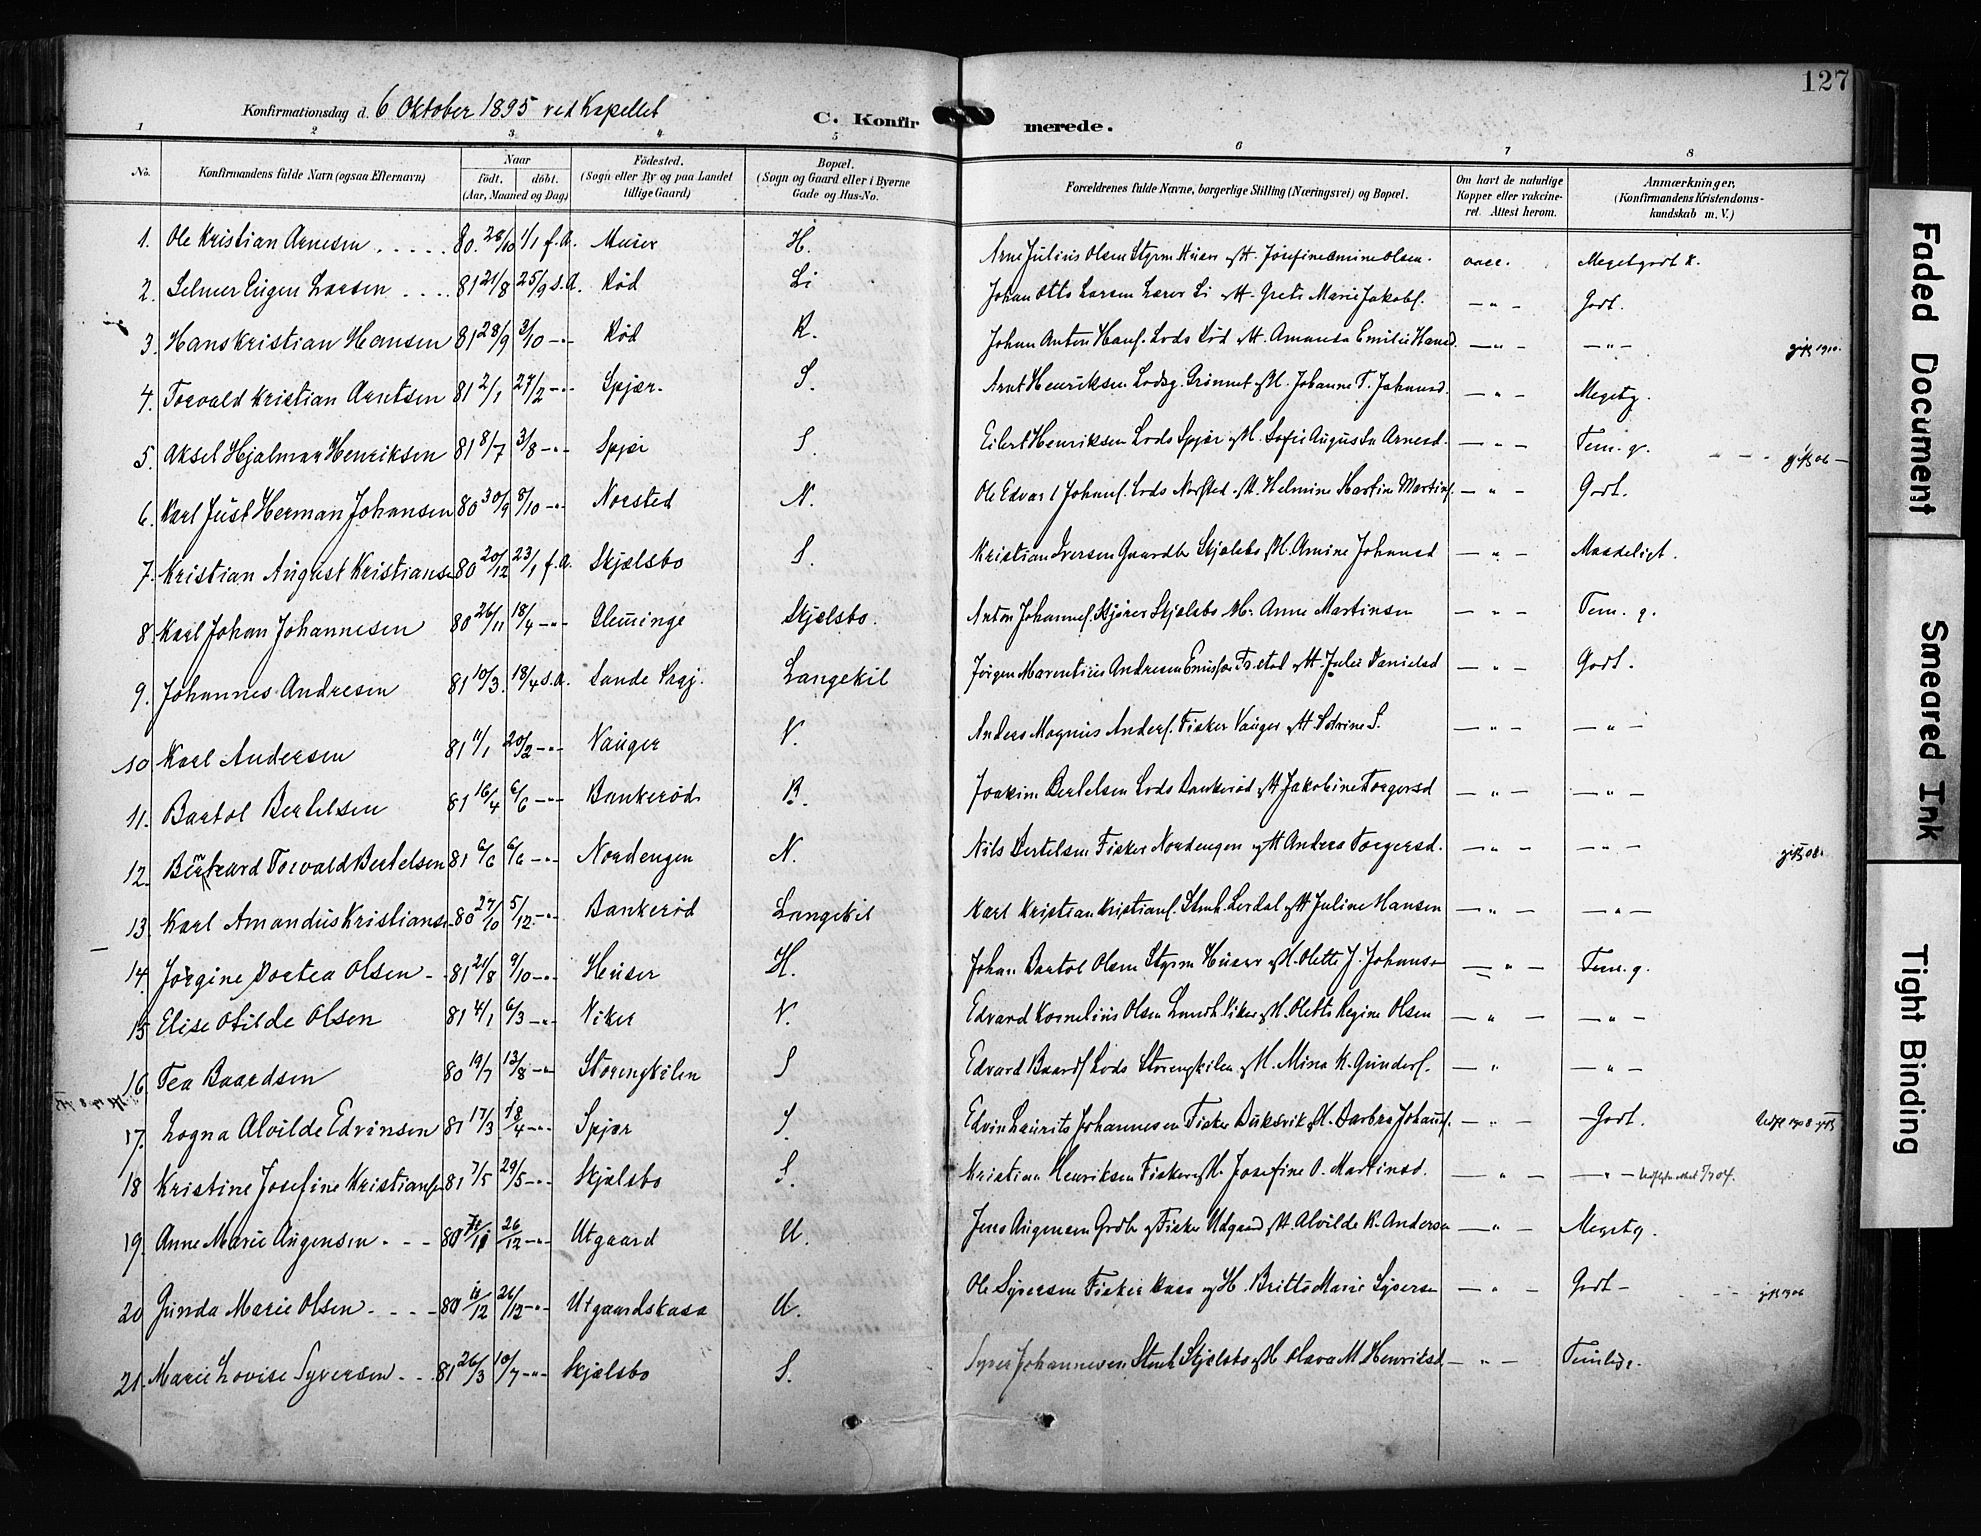 127
Konfirmationsdag d. 6 Oktober 1895 ved Kapellet
C. Konfirmerede.
1 2 3 4 5 6 7 8
No. Konfirmandens fulde Navn (ogsaa Efternavn) Naar födt. döbt. (Aar, Maaned og Dag) Födested. (Sogn eller By og paa Landet tillige Gaard) Bopæl. (Sogn og Gaard eller i Byerne Gade og Hus-No. Forældrenes fulde Navne, borgerlige Stilling (Næringsvei) og Bopæl. Om havt de naturlige Kopper eller vakcineret. Attest herom. Anmærkninger, (Konfirmandens Kristendomskundskab m. V.)
1. Ole Kristian Arnesen 80 28/10 1/1 f.A. Huser H. Arne Julius Olsen Styrm Huser og H. Josefine Amine Olsen. vacc. Megetgodt K.
2. Selmer Eugen Larsen 81 21/8 25/9 s.A. Rød Li Johan Otto Larsen Lærer Li og H. Grete Marie Jakobs. — " — Godt.
3. Hans Kristian Hansen 81 28/9 3/10 —"— Rød R. Johan Anton Hans. Lods Rød og H. Amanda Emilie Hansd. — " — — " — gift 1910.
4. Torvald Kristian Arntsen 81 2/1 27/2 —"— Spjær. S. Arnt Henriksen Lodsg. Grønnet og H. Johanne T. Johansd. — " — Megetg.
5. Aksel Hjalmar Henriksen 81 8/7 3/8 —"— Spjær S. Eilert Henriksen Lods Spjær og H. Sofie Augusta Arnesd. — " — Tem. g. gift 06
6. Karl Just Herman Johansen 80 30/9 8/10 —"— Norsted N. Ole Edvard Johans. Lods Norsted og H. Helmine Martine Martins. — " — Godt.
7. Kristian August Kristianse 80 20/12 23/1 f.A. Skjælsbo S. Kristian Iversen Gaardbr Skjælsbo og H. Amine Johansd — " — Maadeligt.
8 Karl Johan Johannesen 80 26/11 18/4 —"— Glemminge Skjælsbo. Anton Johannes. Skjærer Skjælsbo og H. Anne Martinsen — " — Tem. g.
9. Johannes Andresen 81 10/3. 18/4 s.A. Sande Prgj. Langekil Jørgen Marentius Andresen og H. Julie Danielsd — " — Godt.
10 Karl Andersen 81 11/1 20/2 —"— Vauger V. Anders Magnus Anders. Fisker Vauger og H. Lovine S. — " — — " —
11. Bartol Bertelsen 81 16/4 6/6 —"— Bankerød B. Joakim Bertelsen Lods Bankerød og H. Jakobine Torgersd — " — — " —
12. Bernhard Torvald Bertelsen 81 6/6 6/6 —"— Nordengen N. Nils Bertelsen Fisker Nordengen og H. Andrea Torgersd. — " — — " — gift 08.
13. Karl Amandus Kristianse 80 27/10 5/12 —"— Bankerød Langekil Karl Kristian Kristians. Stenh. Lerdal og H. Juline Hansen — " — — " —
14. Jørgine Dortea Olsen 81 21/8 9/10 —"— Huser H. Johan Bartol Olsen Styrm Huser og H. Olette J. Johanse — " — Tem. g.
15 Elise Otilde Olsen 81 4/1 6/3 —"— Viker V. Edvard Kornelius Olsen Landh. Viker og H. Olette Regine Olsen — " — — " —
16. Tea Baardsen 80 19/7 13/8 —"— Storengkilen S Edvard Baards Lods Storengkilen og H. Mina K. Gunders. — " — " —
17. Logna Alvilde Edvinsen 81 17/3 18/4 —"— Spjær S. Edvin Laurits Johannesen Fisker Buksvik og H. Barbra Johans. — " — Godt.
18 Kristine Josefine Kristianse 81 7/5 29/5 —"— Skjælsbo S. Kristian Henriksen Fisker og H. Josefine O. Martinsd. — " — — " —
19. Anne Marie Augensen 80 /11 26/12 —"— Utgaard U. Jens Augensen Grdbr og Fisker Udgaard og H. Alvilde K. Anderse — " — Megetg.
20 Gunda Marie Olsen 80 /12 26/12 —"— Utgaardskasa U. Ole Syversen Fisker Kasa og H. Britte Marie Syversen — " — Godt — gift 1906
21. Marie Lovise Syversen 81 26/3 10/7 —"— Skjælsbo S. Syver Johannesen Stenh Skjælsbo og H. Olava M Henriksd — " — Temlig.
Faded Document
Smeared Ink
Tight Binding